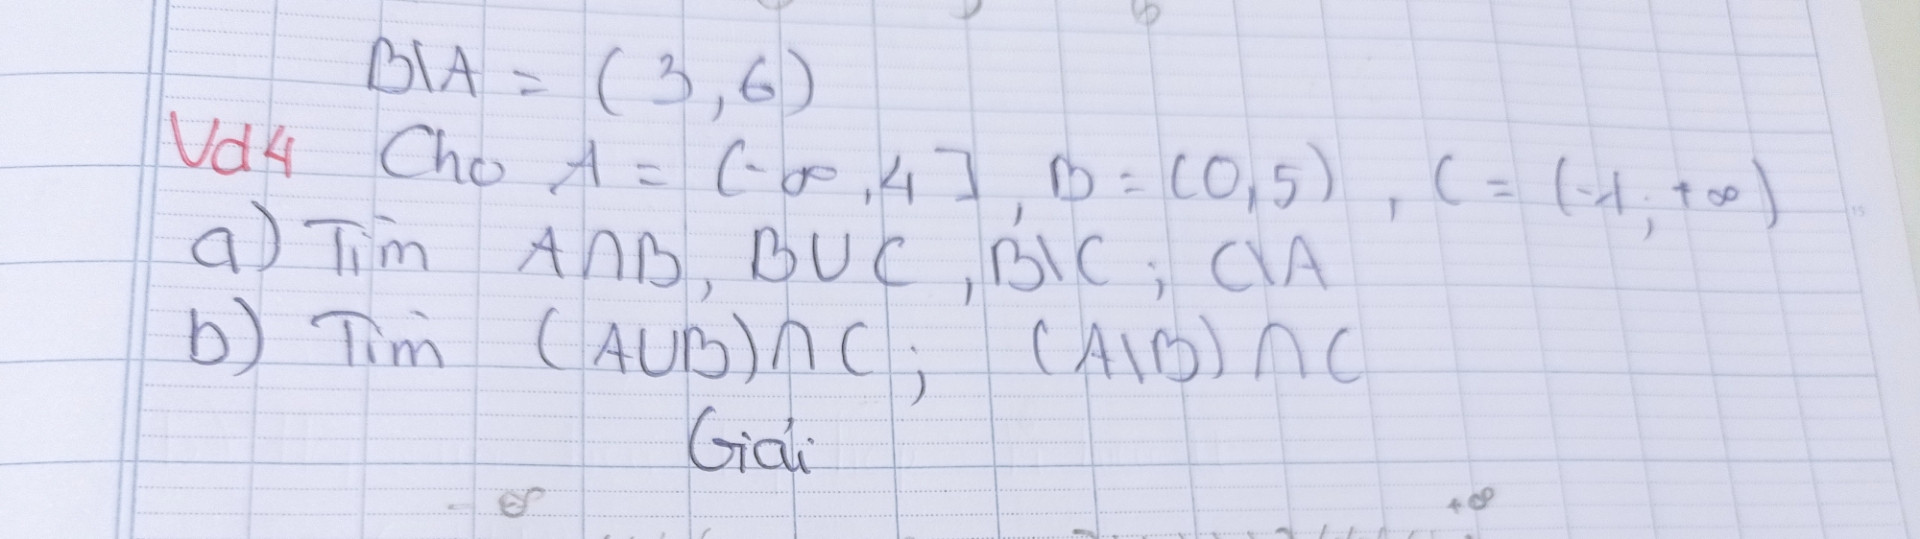 B\A = (3,6)
Vd4 Cho A = (-∞,4], B = (0,5), C = (-1; +∞)
a) Tìm A∩B, B∪C, B\C; C\A
b) Tìm (A∪B)∩C; (A\B)∩C
Giải
-∞ +∞